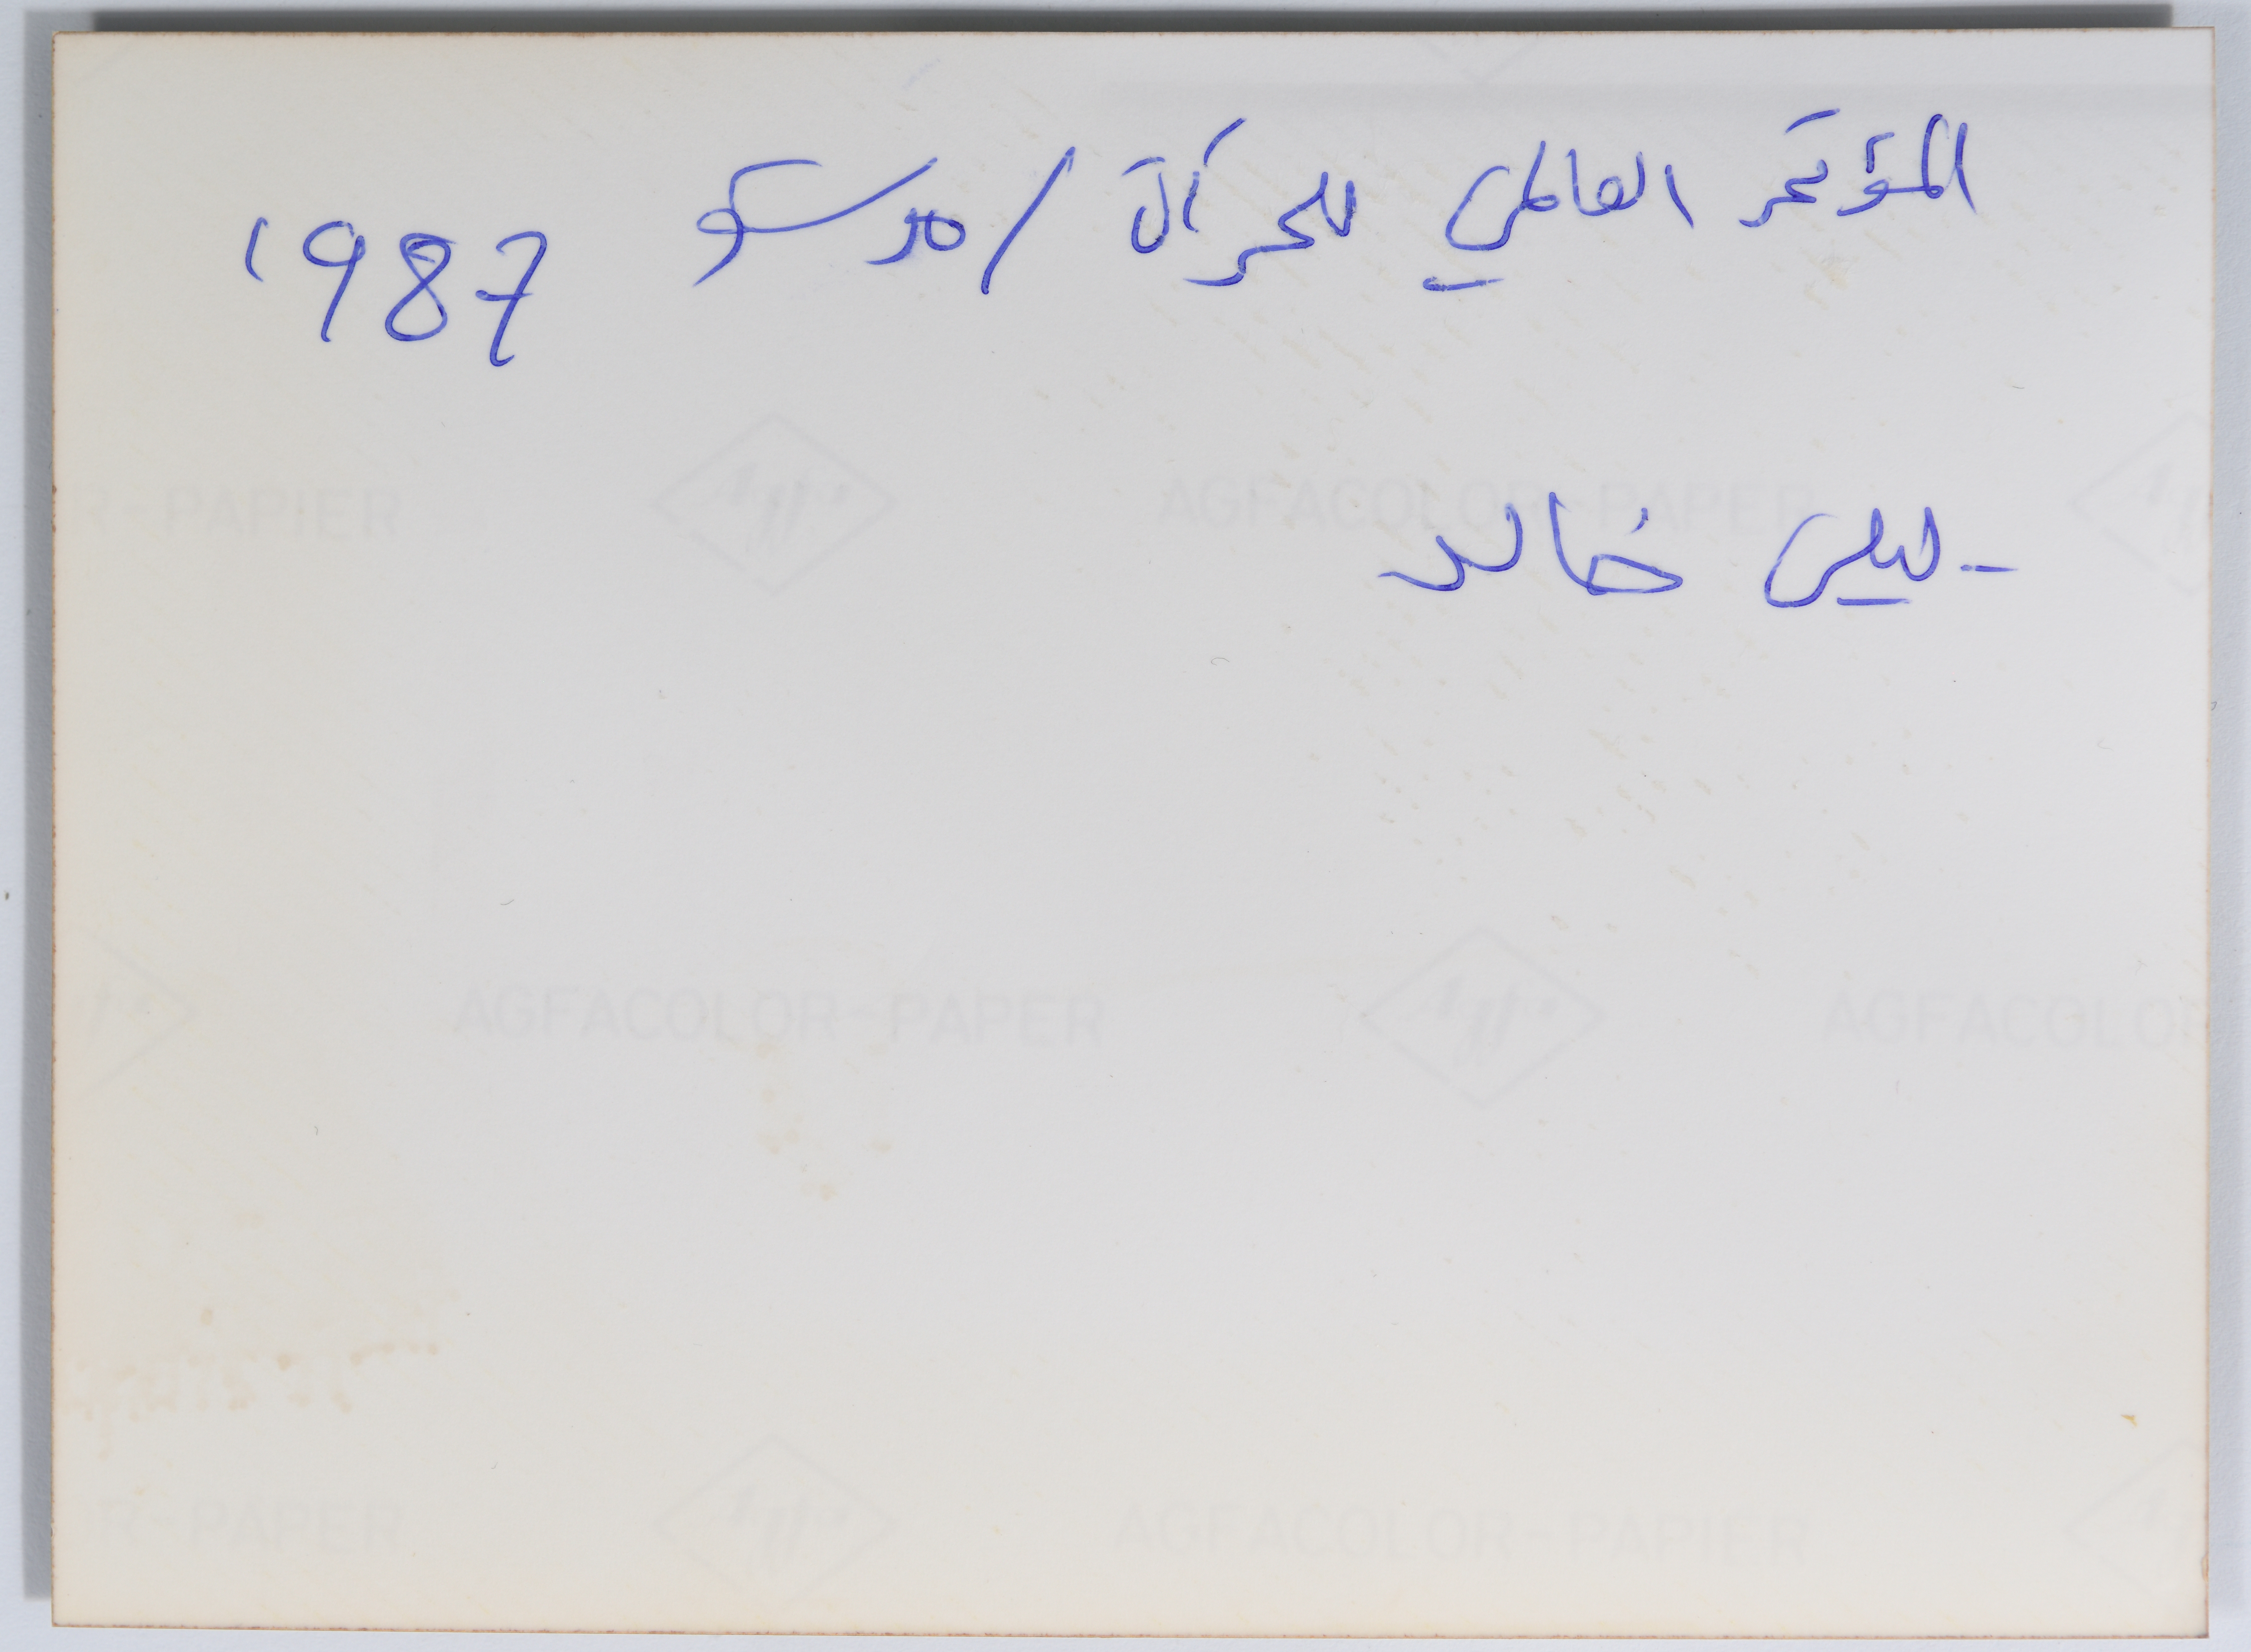 المؤتمر العالمي للمرأة / موسكو 1987
- ليلى خالد
R-PAPIER Agfa AGFACOLOR-PAPER
AGFACOLOR-PAPER Agfa AGFACOLOR
OR-PAPER Agfa AGFACOLOR-PAPIER